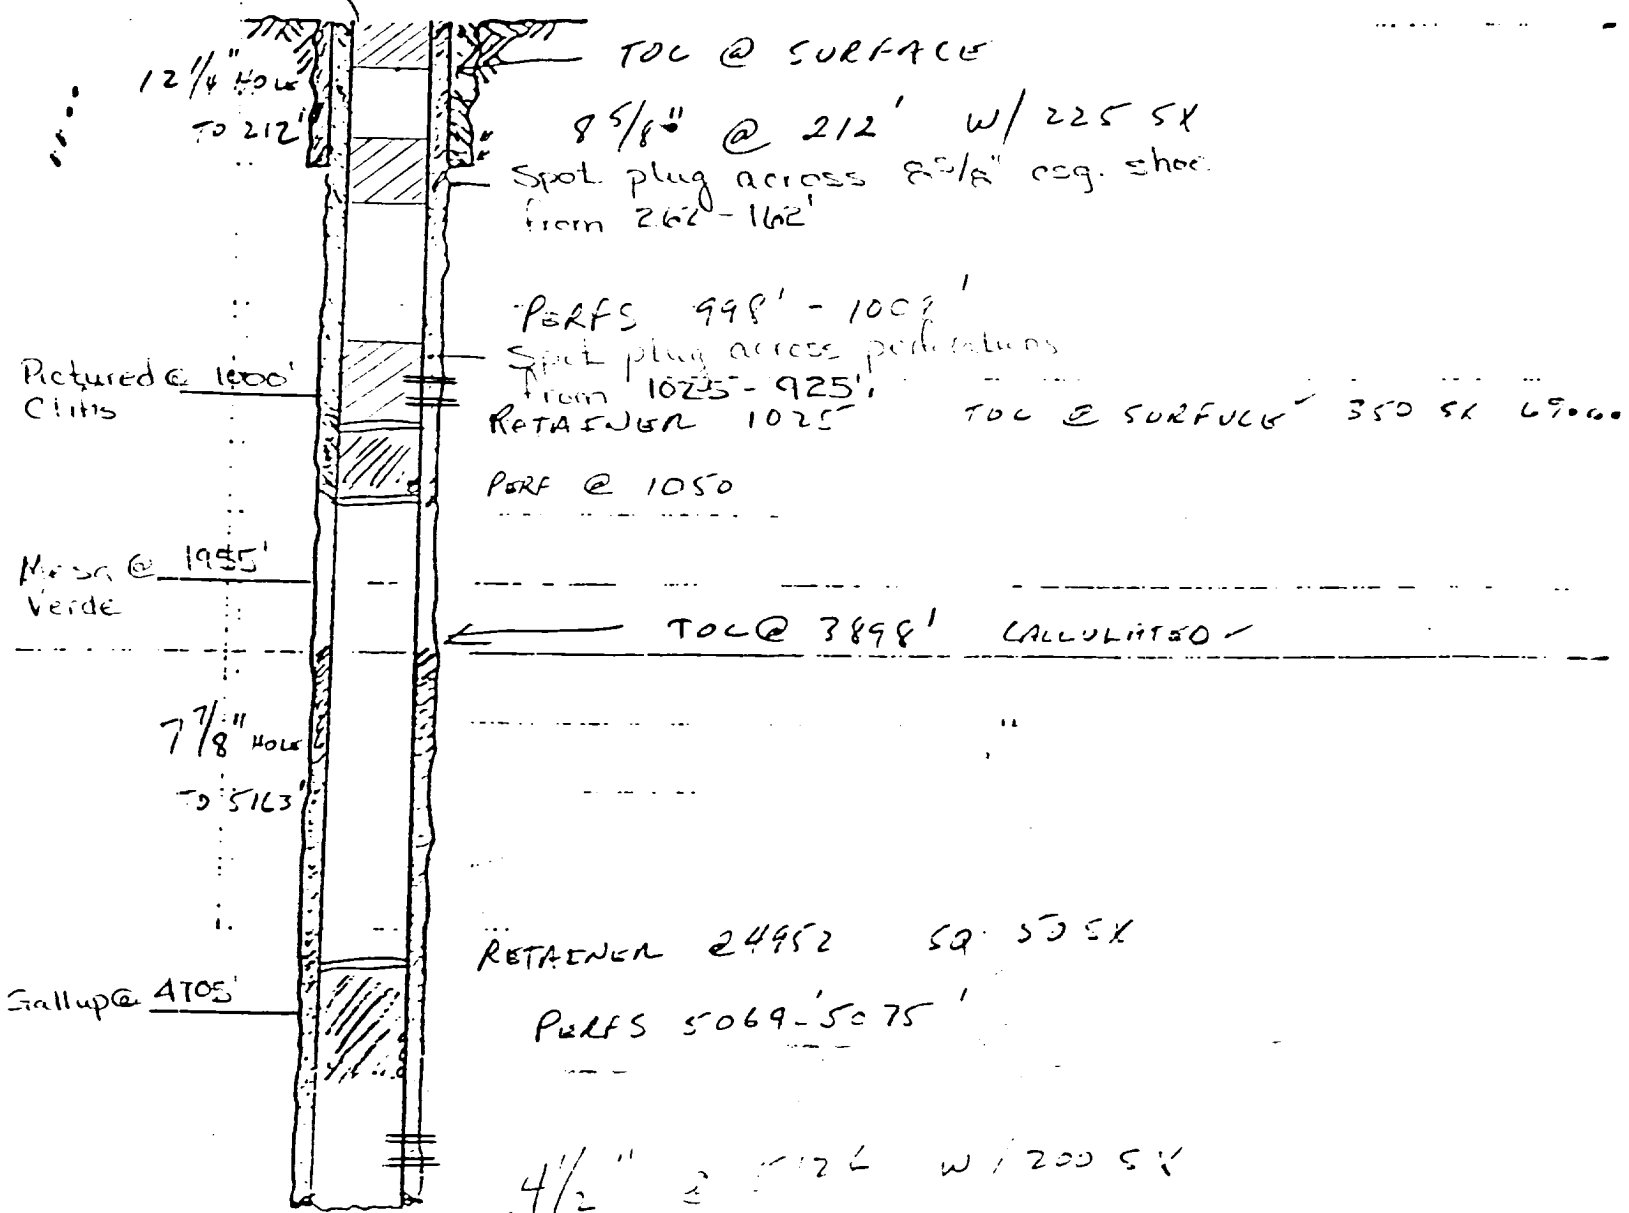 TOC @ SURFACE
12 1/4" HOLE
TO 212'
8 5/8" @ 212' W/ 225 SX
Spot plug across 8 5/8" csg. shoe
from 262'-162'
PERFS 998' -
Spot plug across perforations
from 1025-925'
Pictured @ 1000'
Cliffs
RETAINER 1025 TOC @ SURFACE 350 SX
PERF @ 1050
Mesa @ 1955'
Verde
TOC @ 3898' CALCULATED
7 7/8" HOLE
TO 5163'
RETAINER @ 4952 SQ. 50 SX
Gallup @ 4705'
PERFS 5069-'5075'
4 1/2" @ W/ 200 SX